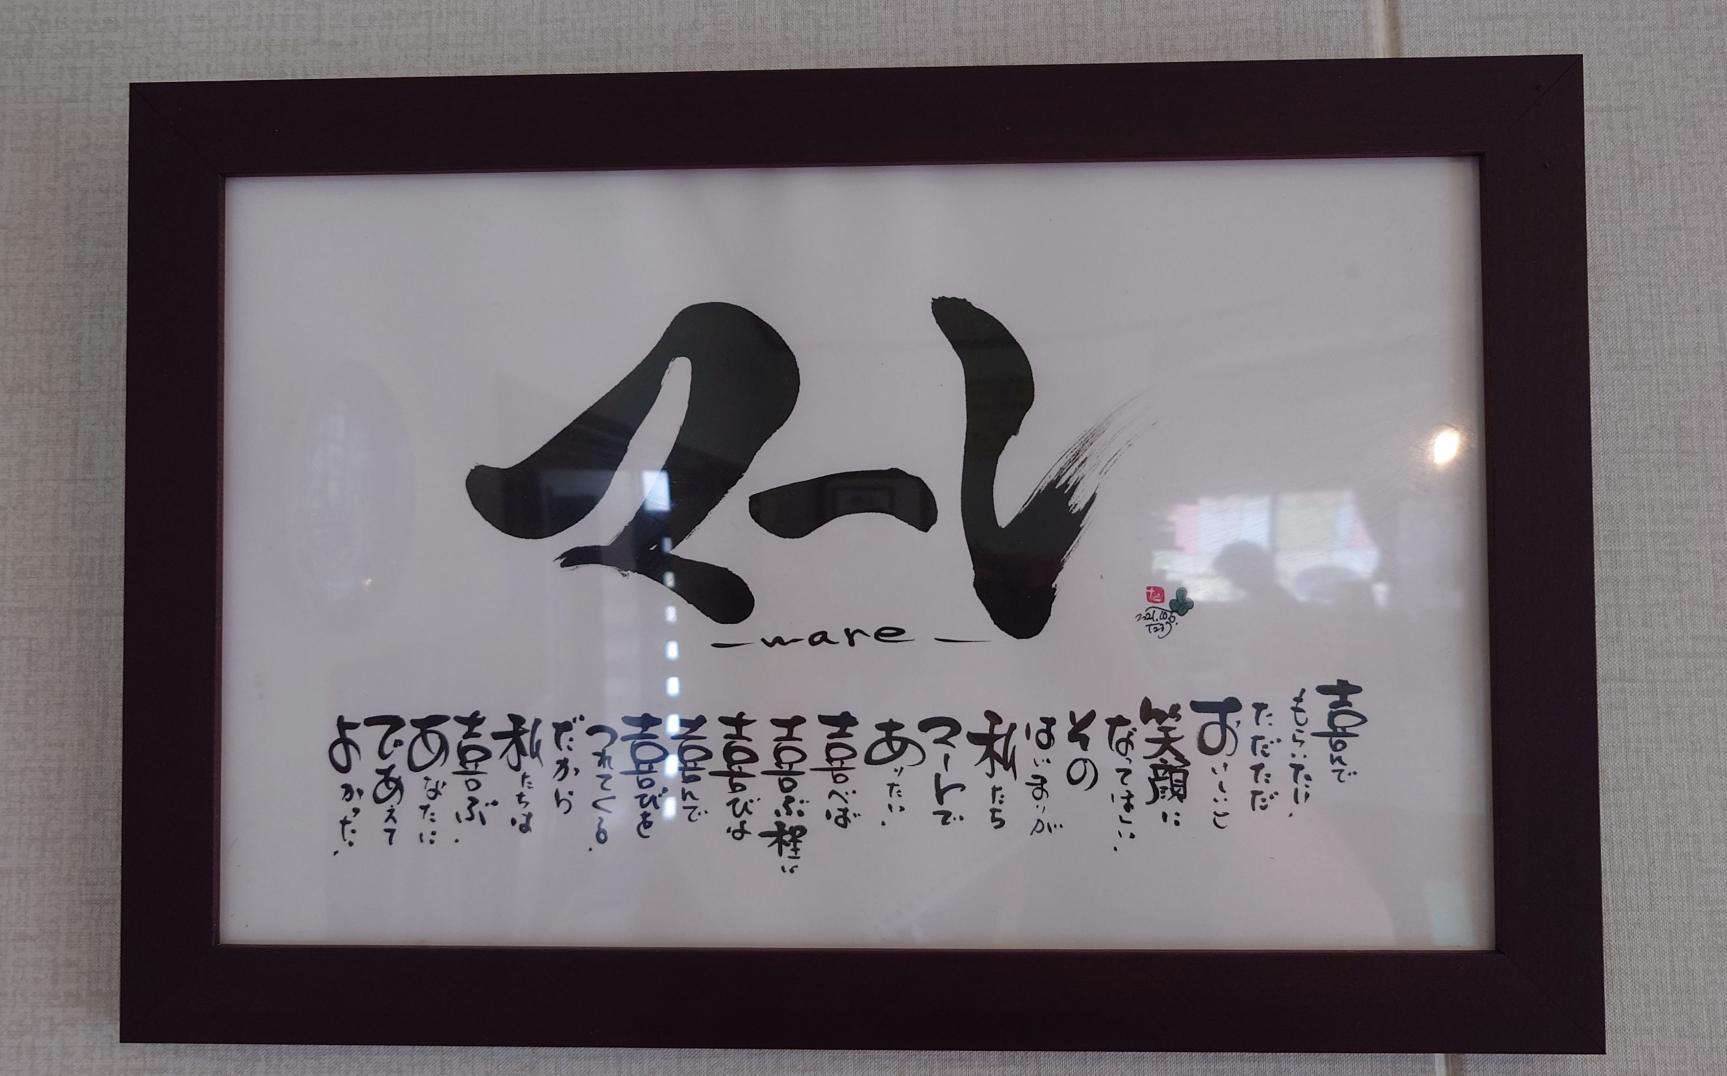 マーレ
mare
喜んで
もらいたい.
ただただ
おいしいと
笑顔に
なってほしい.
その
はじまりが
私たち
マーレで
ありたい.
喜べば
喜ぶ程に
喜びは
喜んで
喜びを
つれてくる.
だから
私たちは
喜ぶ.
あなたに
であえて
よかった.